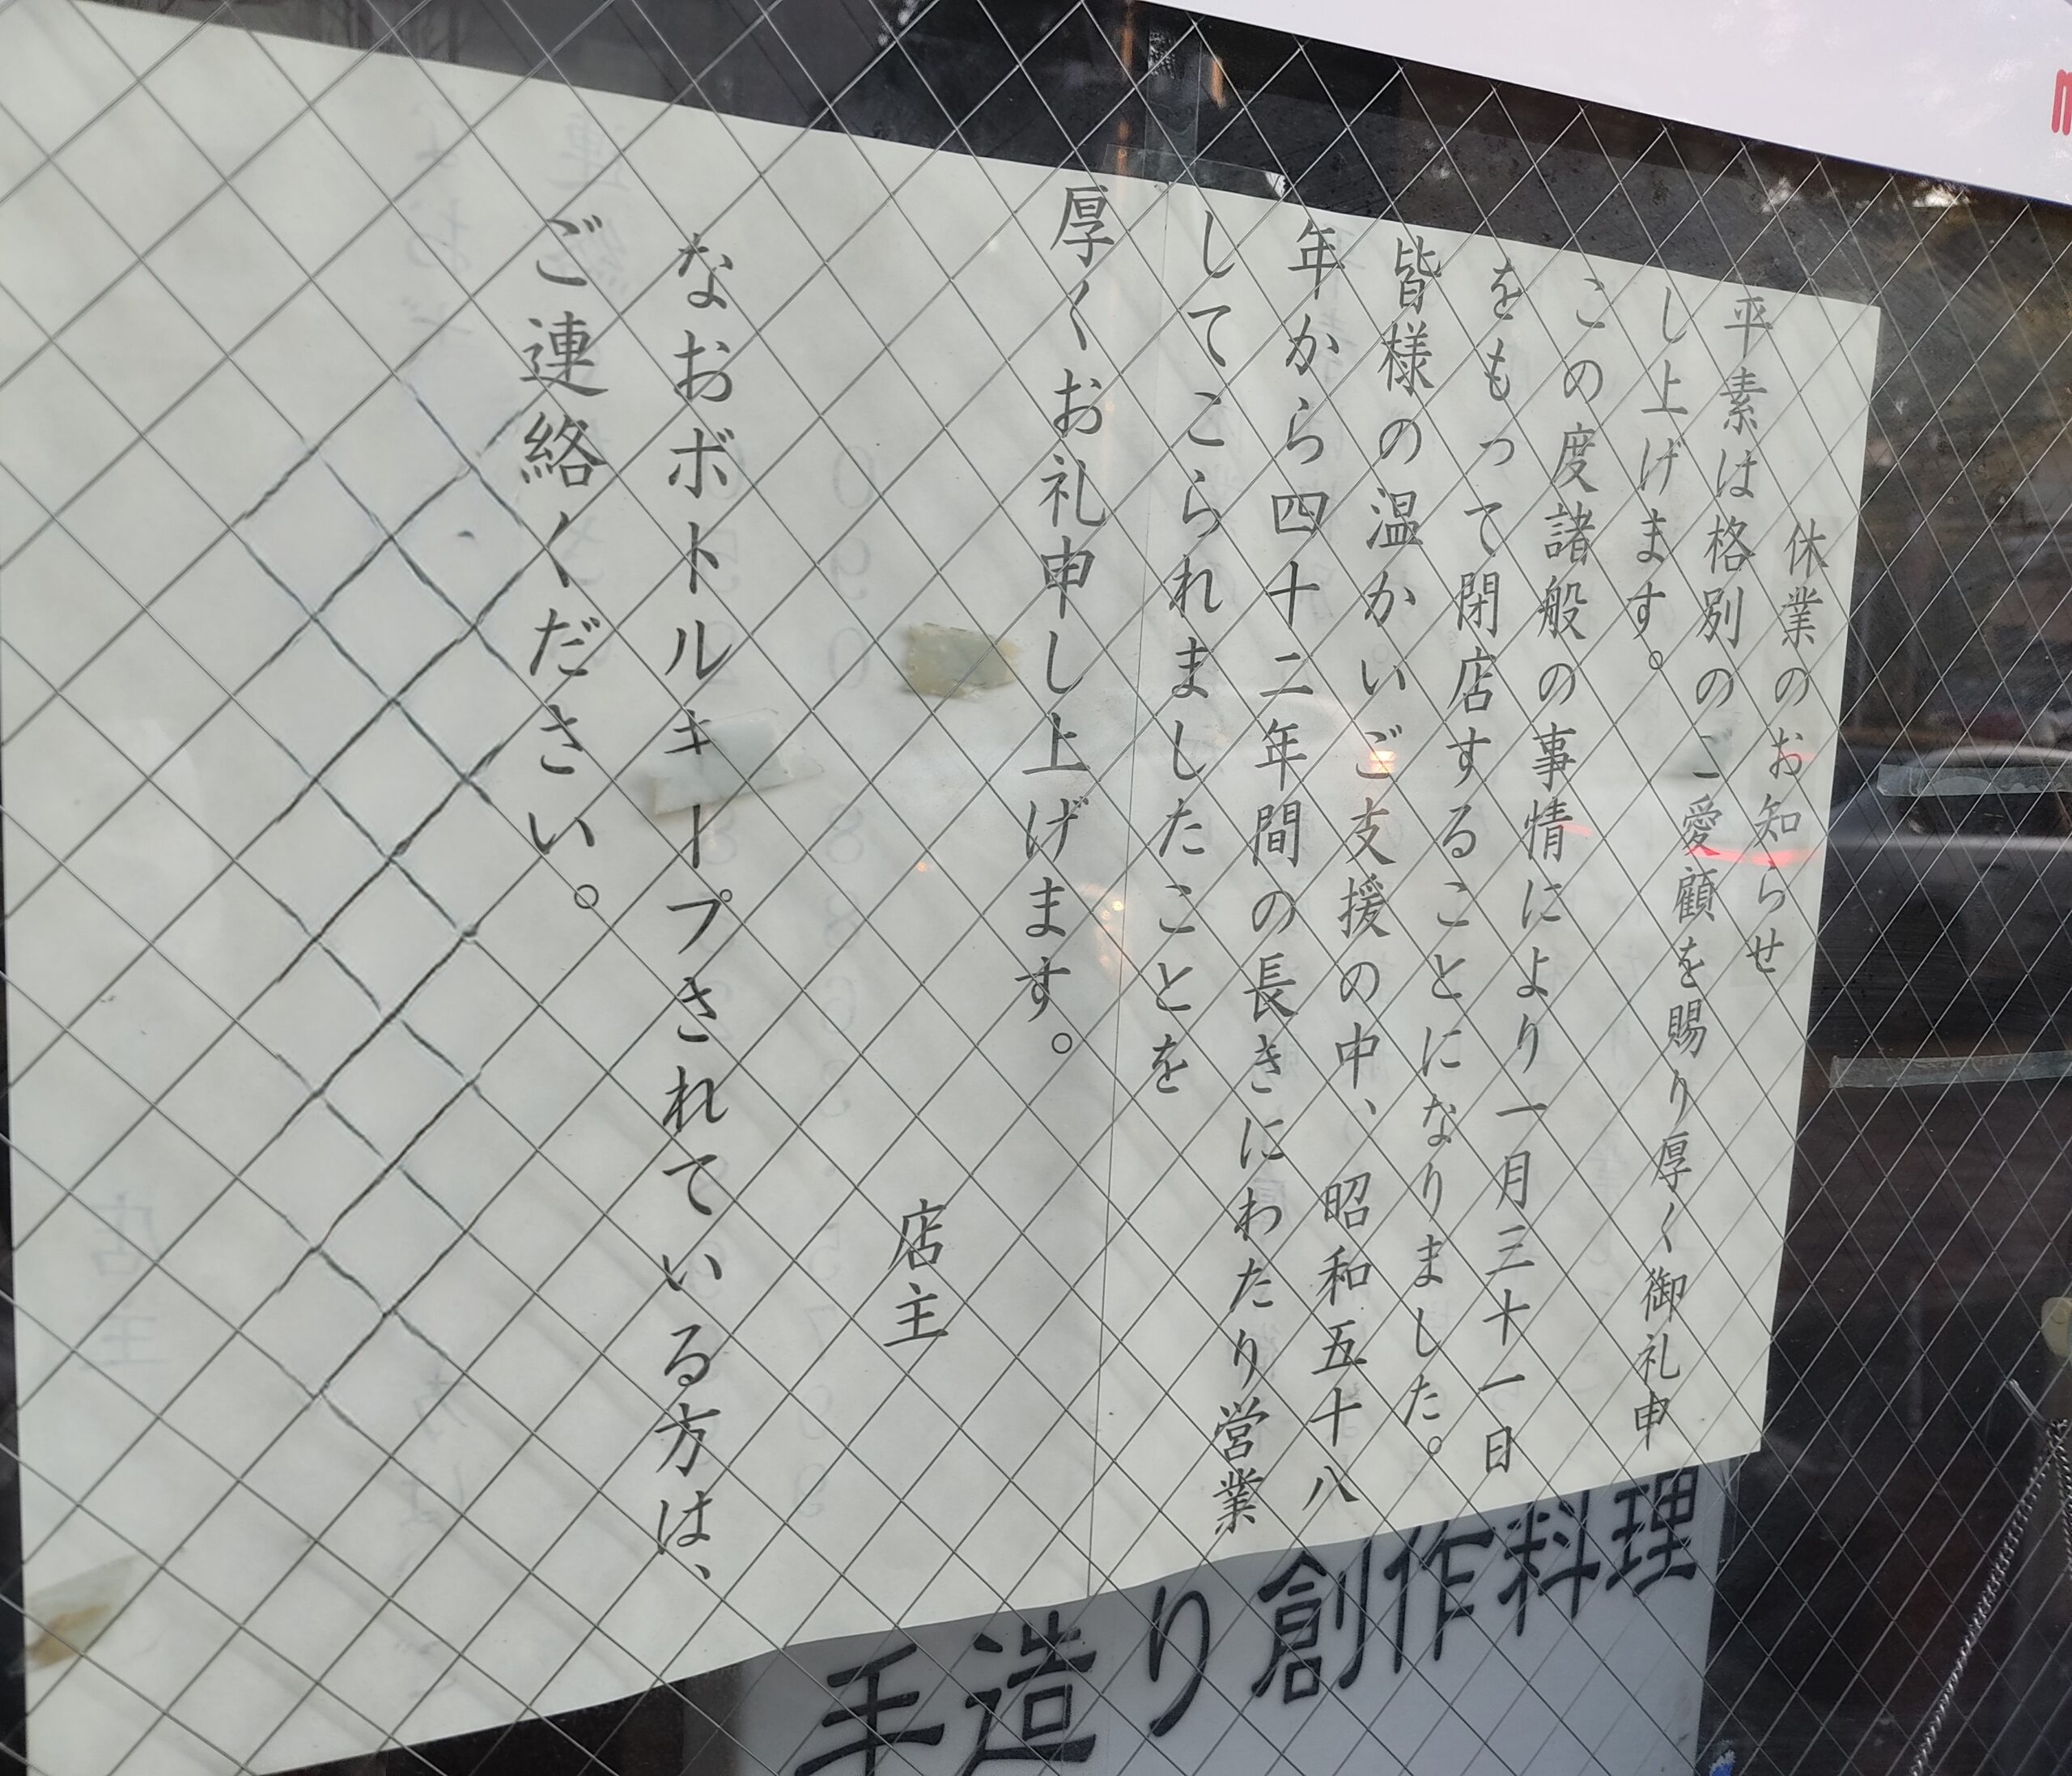 休業のお知らせ
平素は格別のご愛顧を賜り厚く御礼申
し上げます。
この度諸般の事情により一月三十一日
をもって閉店することになりました。
皆様の温かいご支援の中、昭和五十八
年から四十二年間の長きにわたり営業
してこられましたことを
厚くお礼申し上げます。
店主
なおボトルキープされている方は、
ご連絡ください。
手造り創作料理